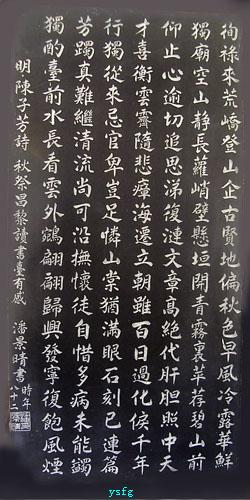 徇祿來荒嶠登山企古賢地偏秋色早風冷露華鮮
獨廟空山靜長蘿峭壁懸垣開青靄裏草荐碧山前
仰止心逾切追思涕復漣文章高絕代肝胆照中天
才喜衡雲霽隨悲瘴海遷立朝雖百日過化俟千年
行獨從來忌官卑豈足憐山棠猶滿眼石刻已連篇
芳躅真難繼清流尚可沿撫懷徒自惜多病未能蠲
獨酌臺前水長看雲外鵷翩翩歸興發寧復飽風煙
明·陳子芳詩 秋祭昌黎讀書臺有感 潘景晴書 時年八十二
ysfg